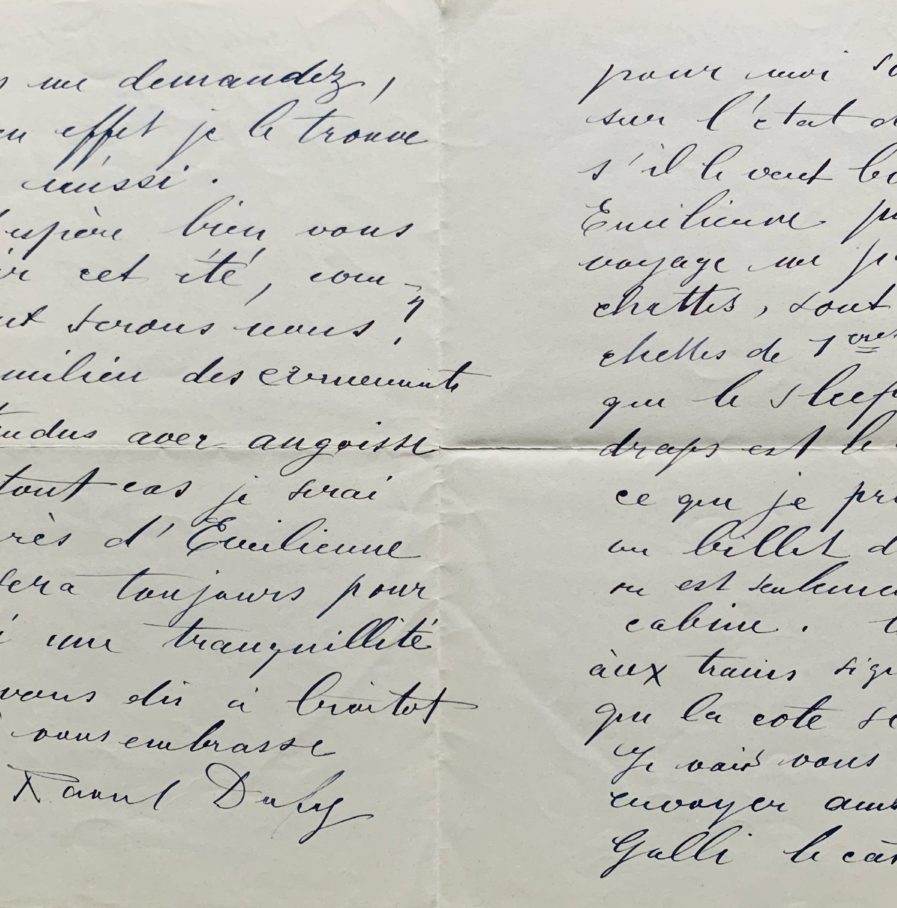 me demandez,
en effet je le trouve
réussi.
espère bien vous
cet été, com-
serons nous?
milieu des evenements
avec angoisse
tout cas je serai
d'Emilienne
sera toujours pour
une tranquillité
vous dis à bientot
vous embrasse
Raoul Dufy
pour moi
sur l'état
s'il le veut
Emilienne
voyage me
chettes, sont
chettes de 1eres
que le
draps est le
ce que je
un billet
ou est
cabine.
aux trains
que la cote
Je vais vous
envoyer
Galli le